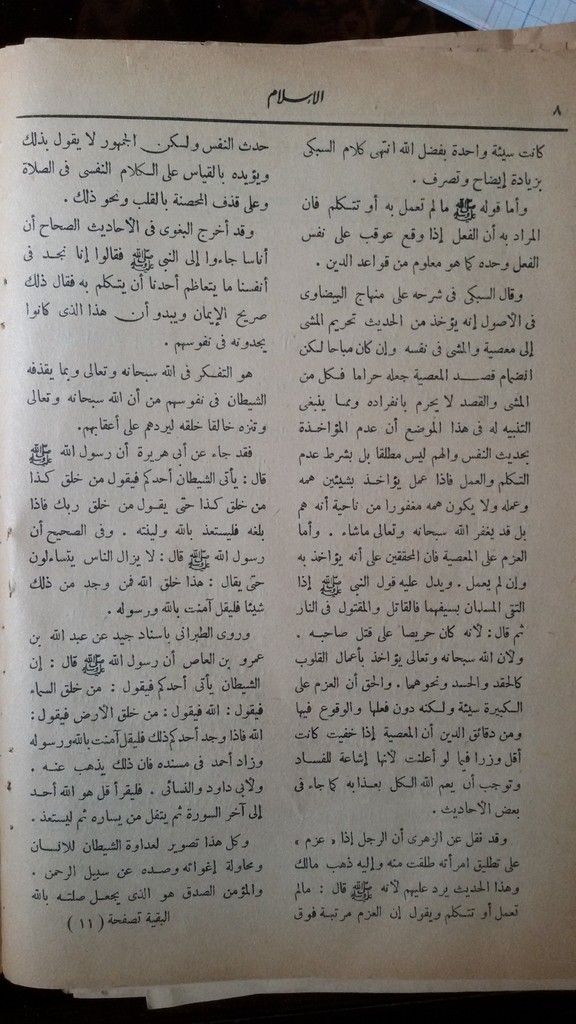 ٨
الإسلام
كانت سيئة واحدة بفضل الله انتهى كلام السبكى
بزيادة إيضاح وتصرف .
وأما قوله ﷺ مالم تعمل به أو تتكلم فان
المراد به أن الفعل إذا وقع عوقب على نفس
الفعل وحده كما هو معلوم من قواعد الدين .
وقال السبكى فى شرحه على منهاج البيضاوى
فى الأصول إنه يؤخذ من الحديث تحريم المشى
إلى معصية والمشى فى نفسه وإن كان مباحا لكن
انضمام قصد المعصية جعله حراما فكل من
المشى والقصد لا يحرم بانفراده ومما ينبغى
التنبيه له فى هذا الموضع أن عدم المؤاخذة
بحديث النفس والهم ليس مطلقا بل بشرط عدم
التكلم والعمل فاذا عمل يؤاخذ بشيئين همه
وعمله ولا يكون همه مغفورا من ناحية أنه هم
بل قد يغفر الله سبحانه وتعالى ماشاء . وأما
العزم على المعصية فان المحققين على أنه يؤاخذ به
وإن لم يعمل . ويدل عليه قول النبى ﷺ إذا
التقى المسلمان بسيفهما فالقاتل والمقتول فى النار
ثم قال : لأنه كان حريصا على قتل صاحبه .
ولأن الله سبحانه وتعالى يؤاخذ بأعمال القلوب
كالحقد والحسد ونحوهما . والحق أن العزم على
الكبيرة سيئة ولكنه دون فعلها والوقوع فيها
ومن دقائق الدين أن المعصية إذا خفيت كانت
أقل وزرا فيما لو أعلنت لأنها إشاعة للفساد
وتوجب أن يعم الله الكل بعذابه كما جاء فى
بعض الأحاديث .
وقد نقل عن الزهرى أن الرجل إذا « عزم »
على تطليق امرأته طلقت منه وإليه ذهب مالك
وهذا الحديث يرد عليهم لأنه ﷺ قال : مالم
تعمل أو تتكلم ويقول إن العزم مرتبة فوق
حدث النفس ولكن الجمهور لا يقول بذلك
ويؤيده بالقياس على الكلام النفسى فى الصلاة
وعلى قذف المحصنة بالقلب ونحو ذلك .
وقد أخرج البغوى فى الأحاديث الصحاح أن
أناسا جاءوا إلى النبى ﷺ فقالوا إنا نجد فى
أنفسنا ما يتعاظم أحدنا أن يتكلم به فقال ذلك
صريح الإيمان ويبدو أن هذا الذى كانوا
يجدونه فى نفوسهم .
هو التفكر فى الله سبحانه وتعالى وبما يقذفه
الشيطان فى نفوسهم من أن الله سبحانه وتعالى
وتنزه خالقا خلقه ليردهم على أعقابهم.
فقد جاء عن أبى هريرة أن رسول الله ﷺ
قال : يأتى الشيطان أحدكم فيقول من خلق كذا
من خلق كذا حتى يقول من خلق ربك فاذا
بلغه فليستعذ بالله ولينته . وفى الصحيح أن
رسول الله ﷺ قال : لا يزال الناس يتساءلون
حتى يقال : هذا خلق الله فمن وجد من ذلك
شيئا فليقل آمنت بالله ورسوله .
وروى الطبرانى باسناد جيد عن عبد الله بن
عمرو بن العاص أن رسول الله ﷺ قال : إن
الشيطان يأتى أحدكم فيقول : من خلق السماء
فيقول : الله فيقول : من خلق الأرض فيقول :
الله فاذا وجد أحدكم ذلك فليقل آمنت بالله ورسوله
وزاد أحمد فى مسنده فان ذلك يذهب عنه .
ولأبى داود والنسائى . فليقرأ قل هو الله أحد
إلى آخر السورة ثم يتفل من يساره ثم ليستعذ .
وكل هذا تصوير لعداوة الشيطان للانسان
ومحاولة إغوائه وصده عن سبيل الرحمن .
والمؤمن الصدق هو الذى يجعل صلته بالله
البقية تصفحة ( ١١ )